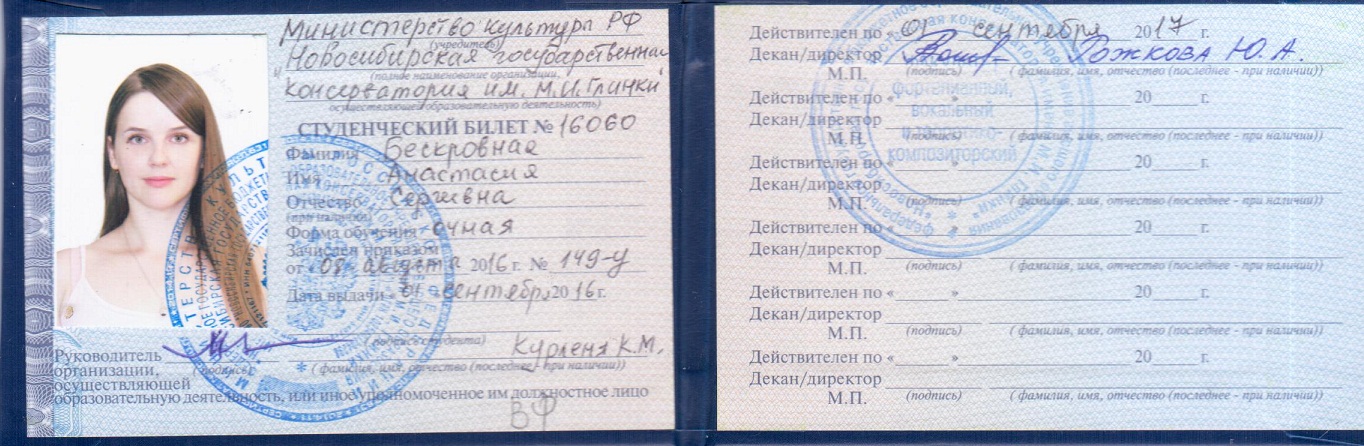 Министерство культуры РФ
(учредитель)
Новосибирская государственная
(полное наименование организации,
консерватория им. М.И. Глинки
осуществляющей образовательную деятельность)
СТУДЕНЧЕСКИЙ БИЛЕТ № 16060
Фамилия Бескровная
Имя Анастасия
Отчество Сергеевна
(при наличии)
Форма обучения очная
Зачислен приказом
от «08» августа 2016 г. № 149-у
Дата выдачи «01» сентября 2016 г.
(подпись студента)
Руководитель Курленя К.М.
организации, (фамилия, имя, отчество (последнее - при наличии))
осуществляющей
образовательную деятельность, или иное уполномоченное им должностное лицо
ВФ
Действителен по «01» сентября 2017 г.
Декан/директор Рожкова Ю.А.
М.П. (подпись) (фамилия, имя, отчество (последнее - при наличии))
фортепианный,
вокальный
композиторский
Действителен по « » 20 г.
Декан/директор
М.П. (подпись) (фамилия, имя, отчество (последнее - при наличии))
Действителен по « » 20 г.
Декан/директор
М.П. (подпись) (фамилия, имя, отчество (последнее - при наличии))
Действителен по « » 20 г.
Декан/директор
М.П. (подпись) (фамилия, имя, отчество (последнее - при наличии))
Действителен по « » 20 г.
Декан/директор
М.П. (подпись) (фамилия, имя, отчество (последнее - при наличии))
Действителен по « » 20 г.
Декан/директор
М.П. (подпись) (фамилия, имя, отчество (последнее - при наличии))